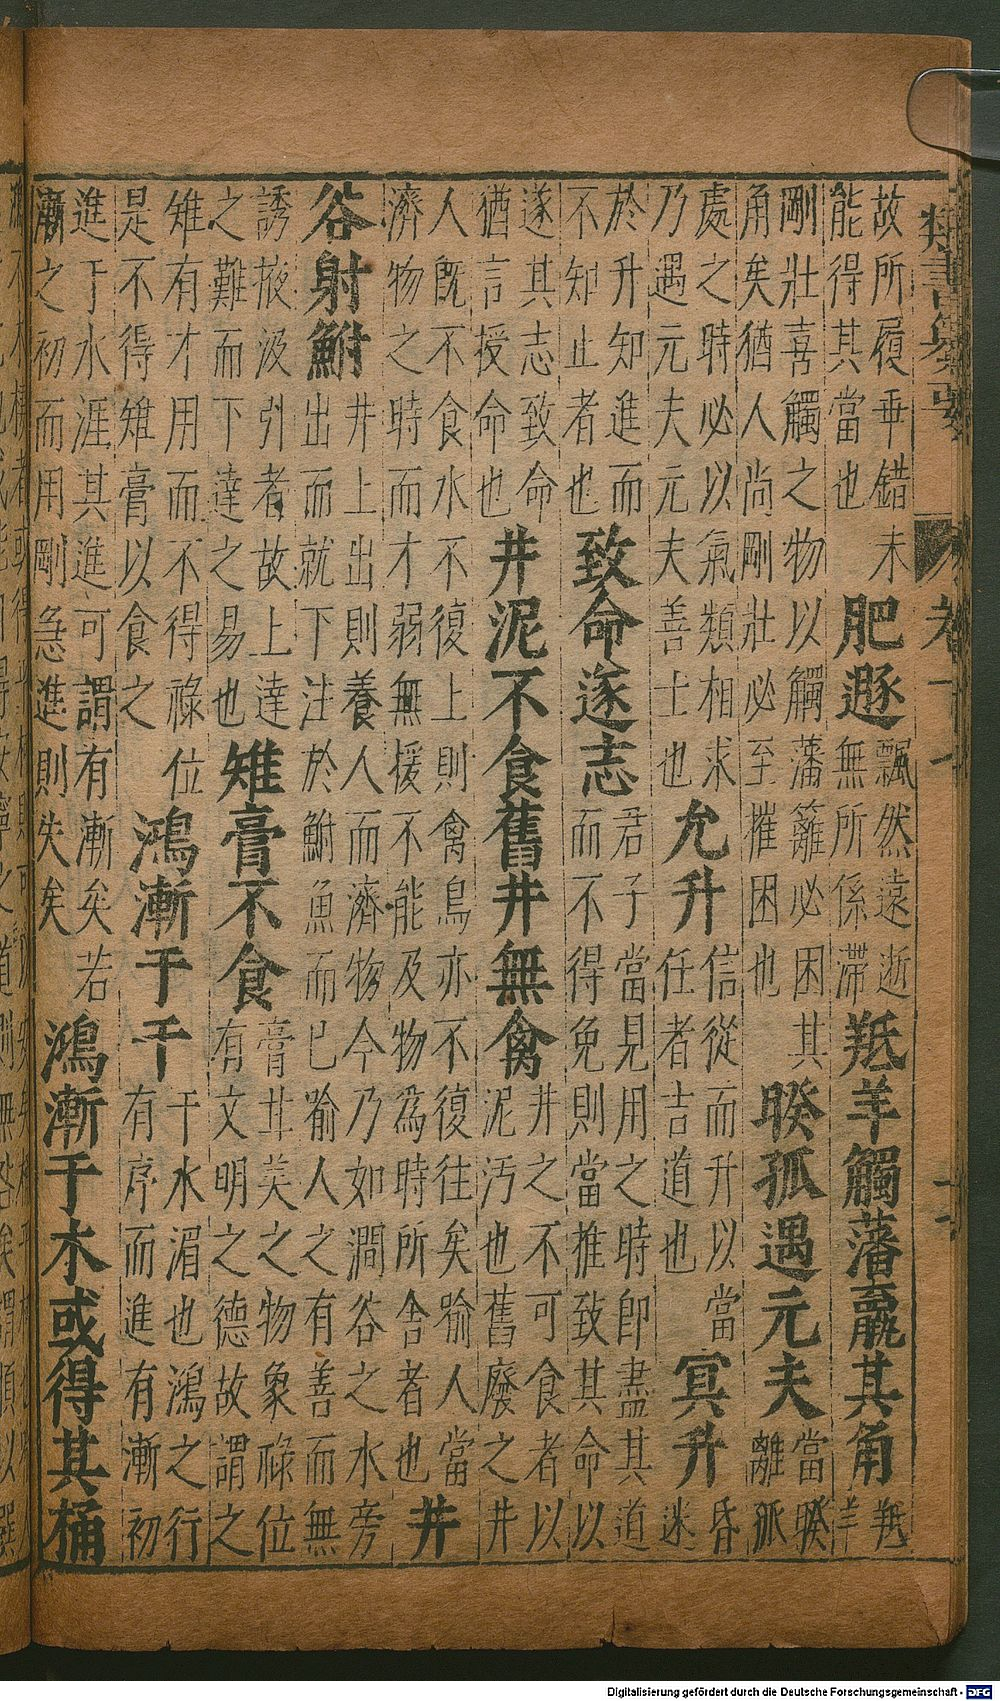 類書纂要
卷十七
故所履乖錯未
能得其當也
肥遯
飄然遠逝
無所係滯
羝羊觸藩羸其角
羝
羊
剛壯喜觸之物以觸藩籬必困其
角矣猶人尚剛壯必至摧困也
睽孤遇元夫
當睽
離孤
處之時必以氣類相求
乃遇元夫元夫善士也
允升
信從而升以當
任者吉道也
冥升
昏
迷
於升知進而
不知止者也
致命遂志
君子當見用之時即盡其道
而不得免則當推致其命以
遂其志致命
猶言授命也
井泥不食舊井無禽
井之不可食者以
泥污也舊廢之井
人既不食水不復上則禽鳥亦不復往矣喻人當
濟物之時而才弱無援不能及物為時所舍者也
井
谷射鮒
井上出則養人而濟物今乃如澗谷之水旁
出而就下注於鮒魚而已喻人之有善而無
誘掖汲引者故上達
之難而下達之易也
雉膏不食
膏甘美之物象祿位
有文明之德故謂之
雉有才用而不得祿位
是不得雉膏以食之
鴻漸于干
干水湄也鴻之行
有序而進有漸初
進于水涯其進可謂有漸矣若
漸之初而用剛急進則失矣
鴻漸于木或得其桷
Digitalisierung gefördert durch die Deutsche Forschungsgemeinschaft - DFG